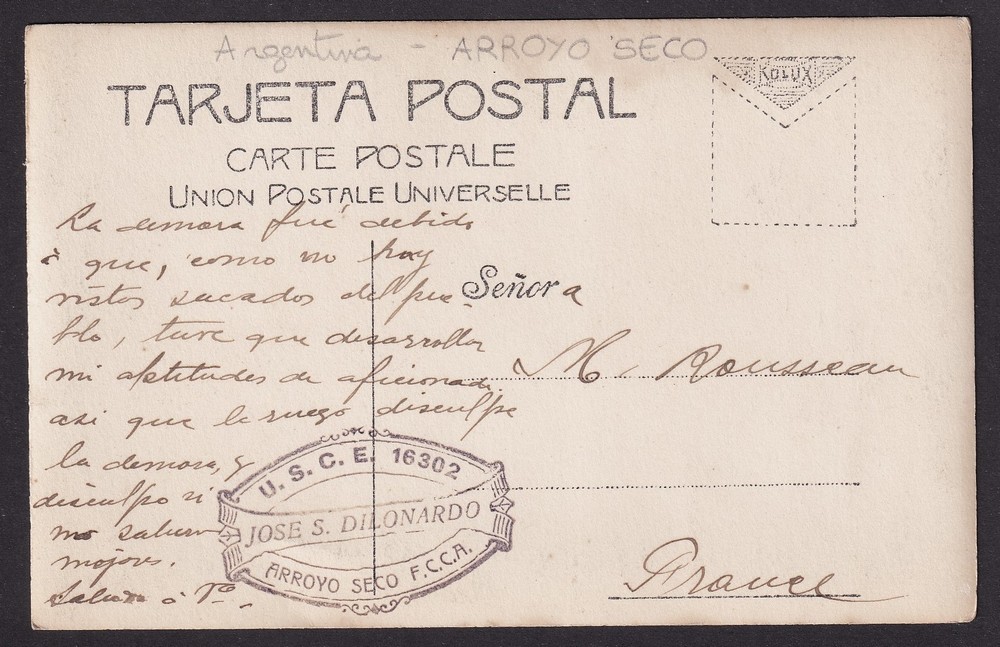 Argentina - ARROYO SECO
KOLUX
TARJETA POSTAL
CARTE POSTALE
UNION POSTALE UNIVERSELLE
La demora fué debido
á que, como no hay
vistas sacadas del pue-
blo, tuve que desarrollar
mi aptitudes de aficionado.
asi que le ruego disculpe
la demora, y
disculpe si
no salieron
mejores.
Saluda á Vd.
Señora
M. Rousseau
France
U. S. C. E. 16302
JOSE S. DILONARDO
ARROYO SECO F.C.C.A.